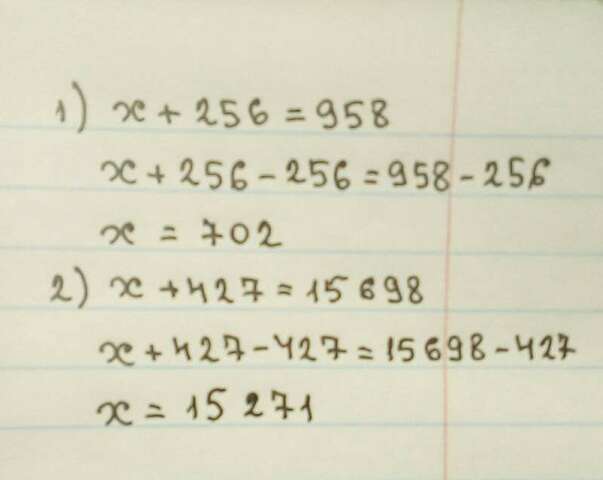 1) x + 256 = 958
x + 256 - 256 = 958 - 256
x = 702
2) x + 427 = 15 698
x + 427 - 427 = 15 698 - 427
x = 15 271